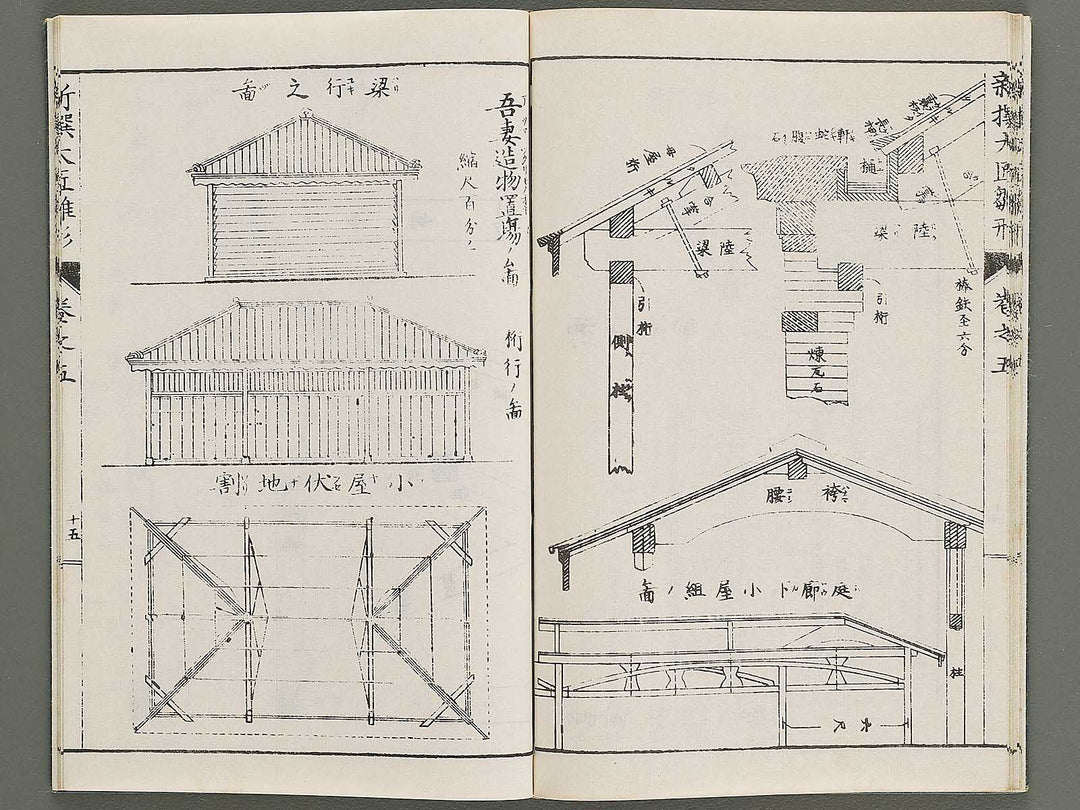 新撰大匠雛形
巻之五
軒蛇腹石
樋
母屋桁
合掌
陸梁
陸梁
引桁
引桁
側柱
煉瓦石
棒鉄至六分
袴腰
庭廊下小屋組ノ圖
柱
吾妻造物置場ノ圖
縮尺百分ノ一
梁行之圖
桁行ノ圖
小屋伏地割
新撰大匠雛形
巻之五
十五